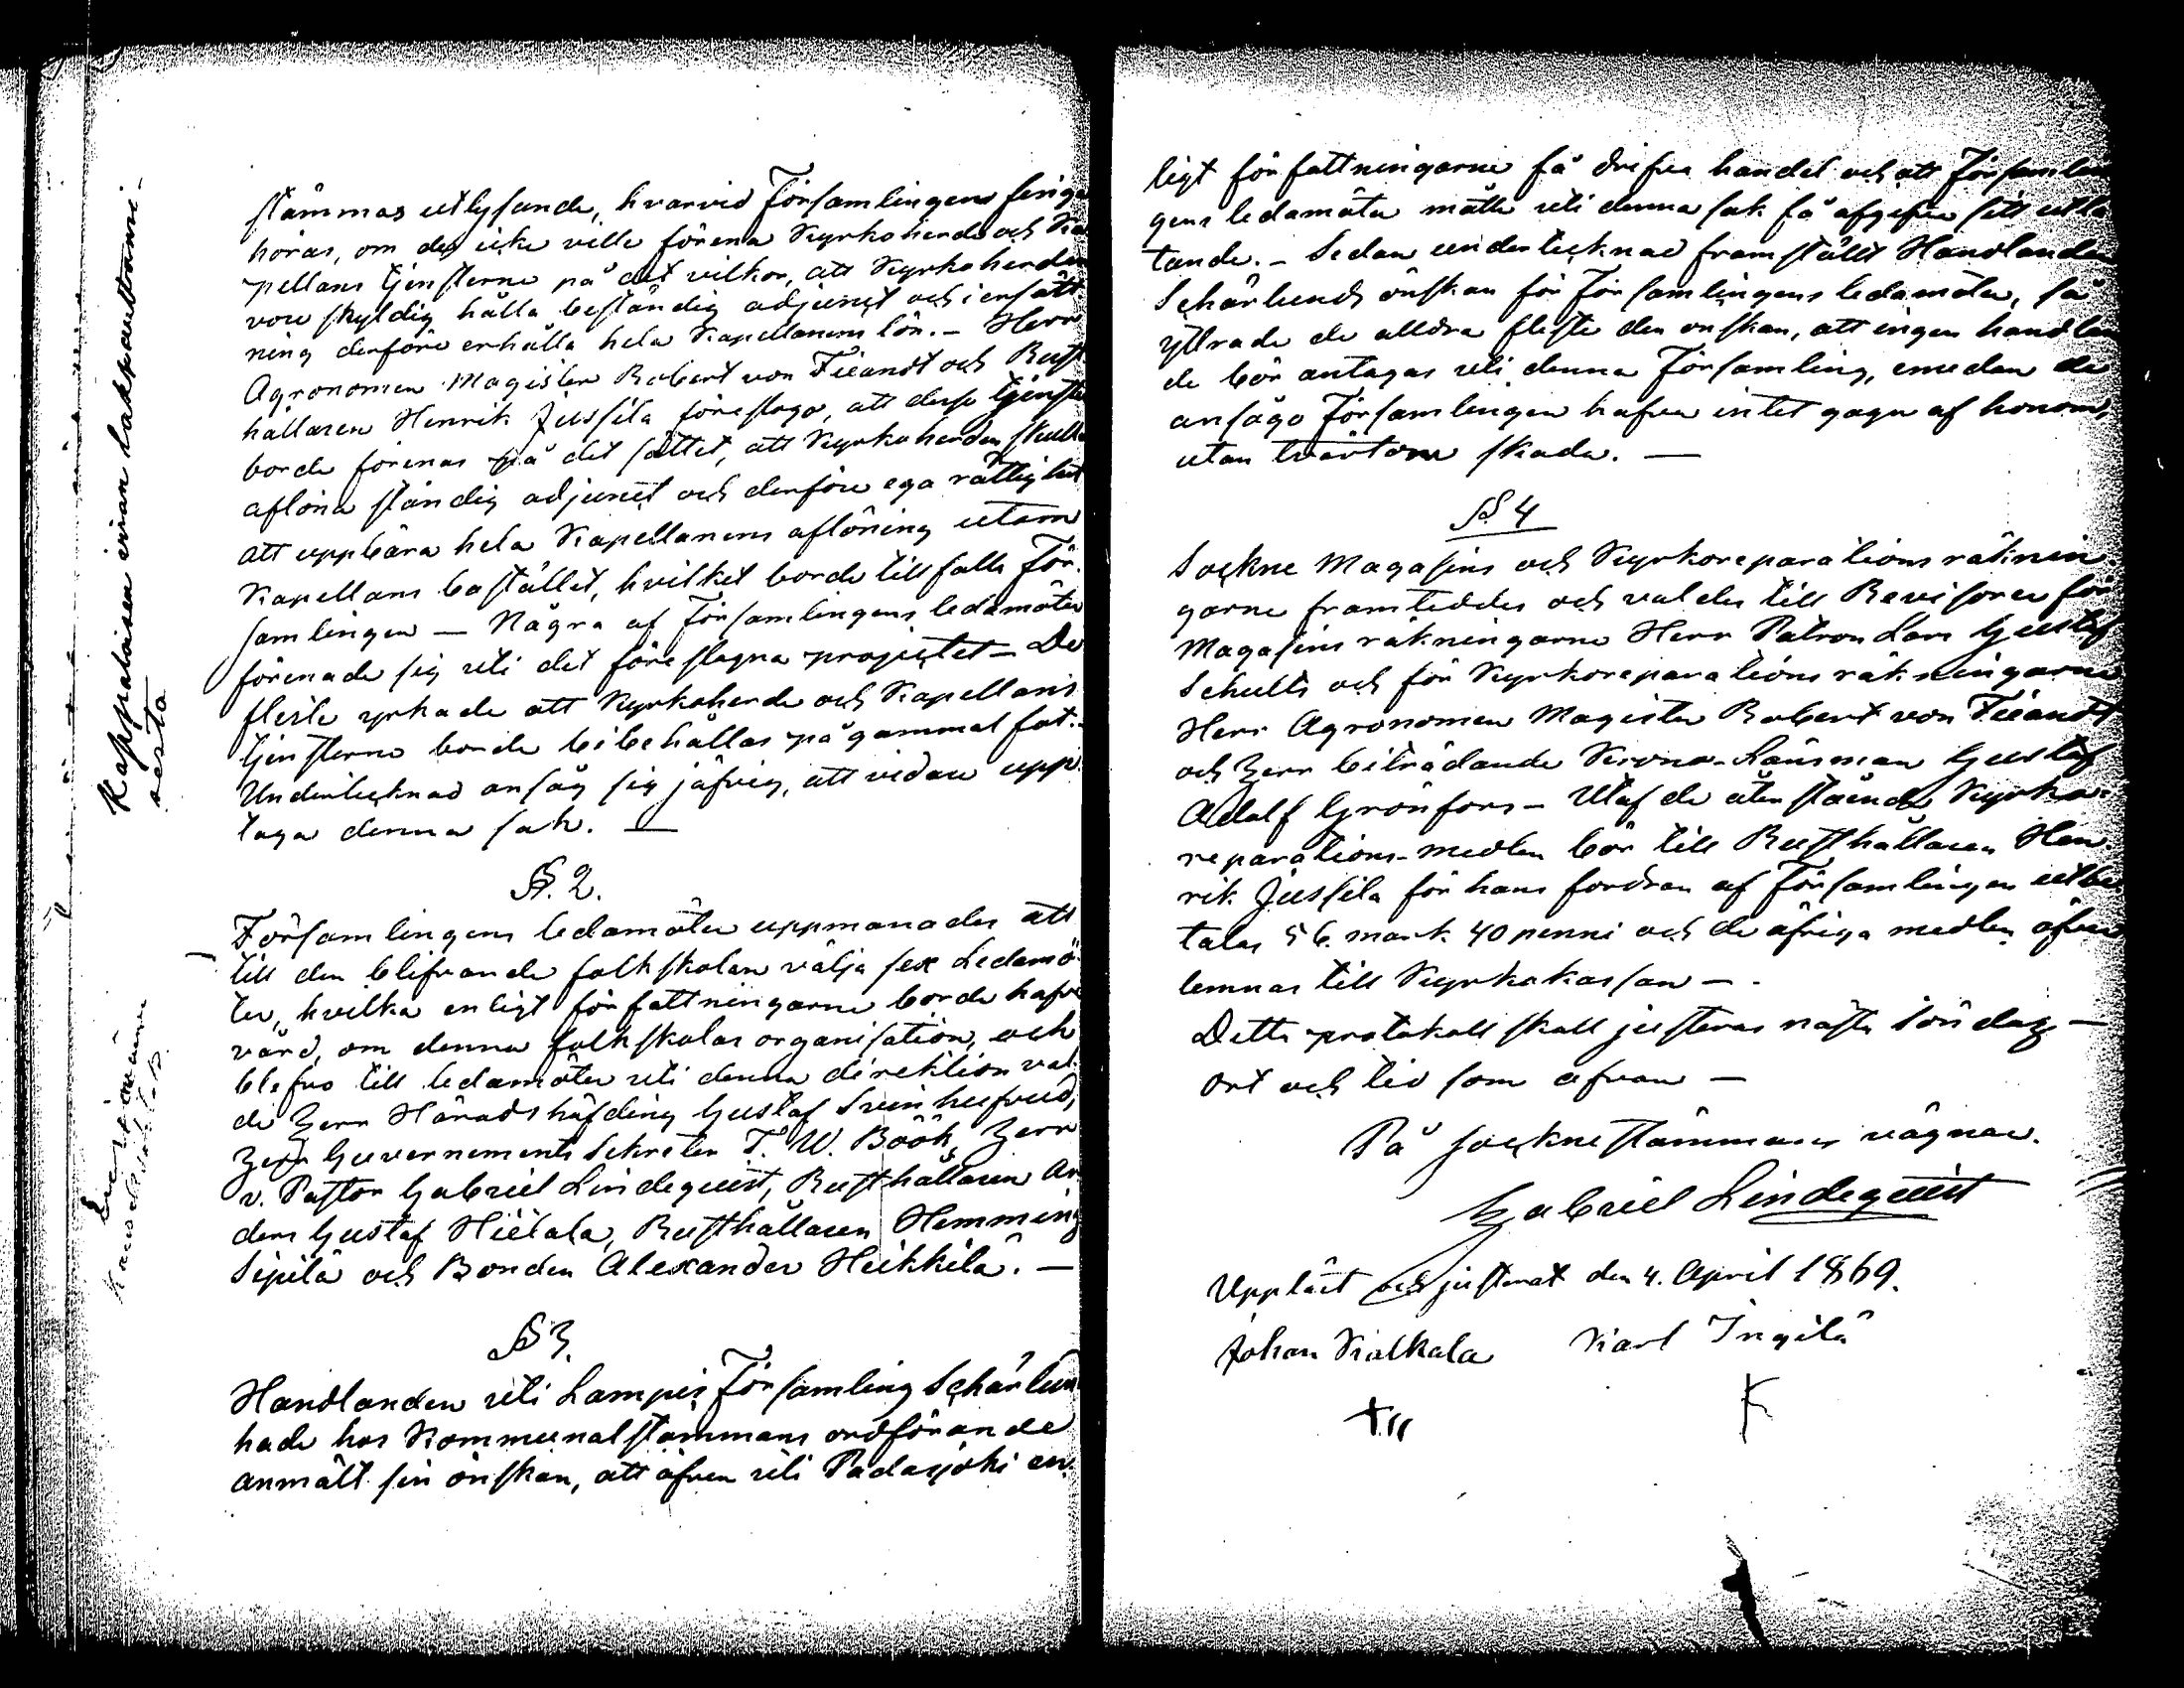 Kappalaisen viran lakkauttami-
sesta
stämmas utlysande, hvarvid Församlingens fingo
höras, om de icke ville förena Kyrkoherde och Ka
pellans tjensterne på det vilkor, att Kyrkoherden
vore skyldig hålla beständig adjunct och i ersätt-
ning derföre erhålla hela Kapellanens lön. – Herr
Agronomen Magister Robert von Fieandt och Rust
hållaren Henrik Jussila föreslogo, att desse tjenster
borde förenas på det sättet, att Kyrkoherden skulle
aflöna ständig adjunct och derföre ega rättighet
att uppbära hela Kapellanens aflöning utom
Kapellans bostället, hvilket borde tillfalla För-
samlingen — Några af Församlingens ledamöter
förenade sig uti det föreslagna projectet – De
fleste yrkade att Kyrkoherde och Kapellans
tjensterne borde bibehållas på gammal fot. –
Undertecknad ansåg sig jäfvig, att vidare upp-
taga denna sak. —
§. 2.
Församlingens ledamöter uppmanades att
till den blifvande folkskolan välja sex Ledamö-
ter, hvilka enligt författningarne borde hafva
vård, om denna folkskolas organisation, och
blefvo till ledamöter uti denna direktion val-
de Herr Häradshöfding Gustaf Svinhufvud,
Herr Guvernements Sekreter T. W. Böök, Herr
v. Pastor Gabriel Lindequist, Rusthållaren An-
ders Gustaf Hietala, Rusthållaren Hemming
Sipilä och Bonden Alexander Heikkilä. —
§ 3.
Handlanden uti Lampis Församling Schärlund
hade hos Kommunalstämmans ordförande
anmält sin önskan, att äfven uti Padasjoki en-
ligt författningarne få drifva handel och att Försambling
gens ledamöter måtte uti denna sak få afgifva sitt utlå
tande. – Sedan undertecknad framställt Handlanden
Schärlunds önskan för Församlingens ledamöter, så
yttrade de alldra fleste den önskan, att ingen handlan
de bör antagas uti denna Församling, emedan de
ansågo Församlingen hafva intet gagn af honom,
utan tvärtom skada. —
§ 4
Sockne Magasins och Kyrkoreparations räknin-
garne framteddes och valdes till Revisorer för
Magasins räkningarne Herr Patron Lars Gustaf
Schults och för Kyrkoreparations räkningarne
Herr Agronomen Magister Robert von Fieandt
och Herr biträdande Krono-Länsman Gustaf
Adolf Grönfors – Utaf de återstående Kyrko-
reparations-medlen bör till Rusthållaren Hen-
rik Jussila för hans fordran af Församlingen utbe-
talas 56 mark 40 penni och de öfriga medlen öfver
lemnas till Kyrkokassan –
Detta protokoll skall justeras nästa Söndag –
Ort och tid som ofvan –
På sockne stämmans vägnar.
Gabriel Lindequist
Uppläst och justerat den 4. April 1869.
Johan Kalkala Karl Ingilä